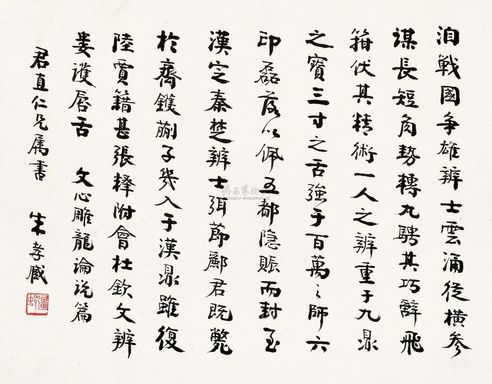 洎戰國爭雄辨士雲涌從橫參
謀長短角勢轉丸騁其巧辭飛
箝伏其精術一人之辨重于九鼎
之寶三寸之舌強于百萬之師六
印磊落以佩五都隱賑而封至
漢定秦楚辨士弭節酈君既斃
於齊鑊蒯子幾入于漢鼎雖復
陸賈籍甚張釋附會杜欽文辨
婁護唇舌 文心雕龍論說篇
君直仁兄屬書 朱孝臧